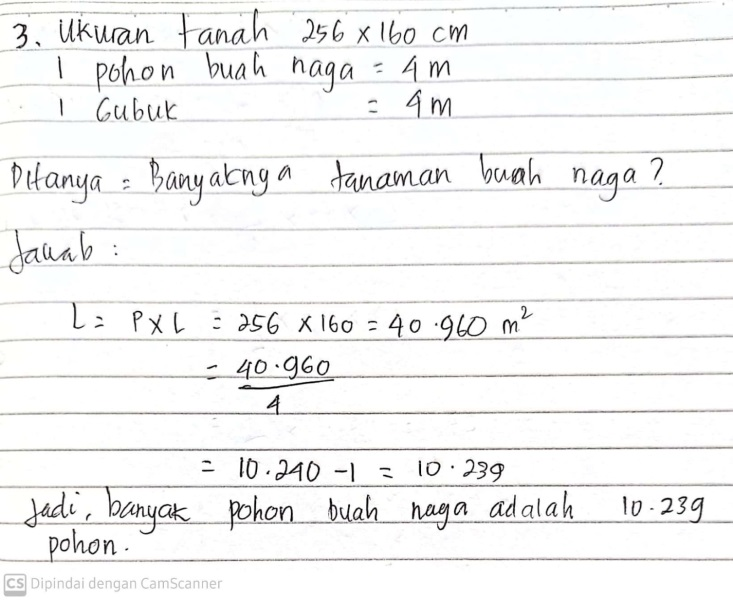 3. Ukuran tanah 256 x 160 cm
1 pohon buah naga = 4 m
1 Gubuk = 4 m
Ditanya = Banyaknya tanaman buah naga?
Jawab :
L = P x L = 256 x 160 = 40.960 m²
= 40.960
4
= 10.240 - 1 = 10.239
Jadi, banyak pohon buah naga adalah 10.239
pohon.
CS Dipindai dengan CamScanner